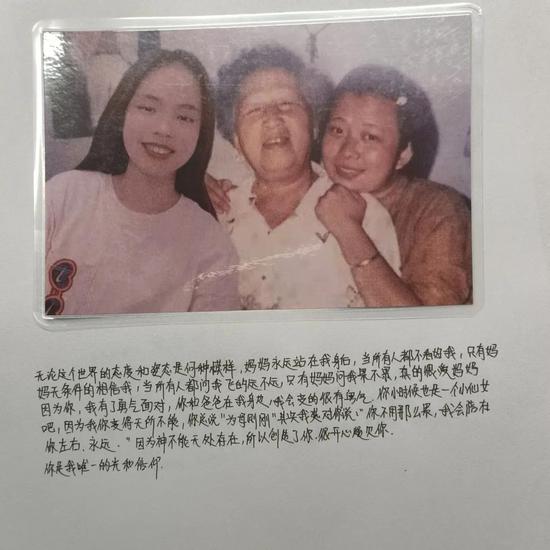 无论这个世界的态度和姿态是何种模样，妈妈永远站在我身后，当所有人都不看好我，只有妈
妈无条件的相信我，当所有人都问我飞的远不远，只有妈妈问我累不累，真的很爱妈妈
因为你，我有了勇气面对，你和爸爸在我身边，我会变的很有勇气。你小时候也是一个小仙女
吧，因为我你变得无所不能，你总说"为母则刚"其实我想对你说："你不用那么累，我会陪在
你左右，永远。"因为神不能无处存在，所以创造了你，很开心遇见你。
你是我唯一的光和信仰。